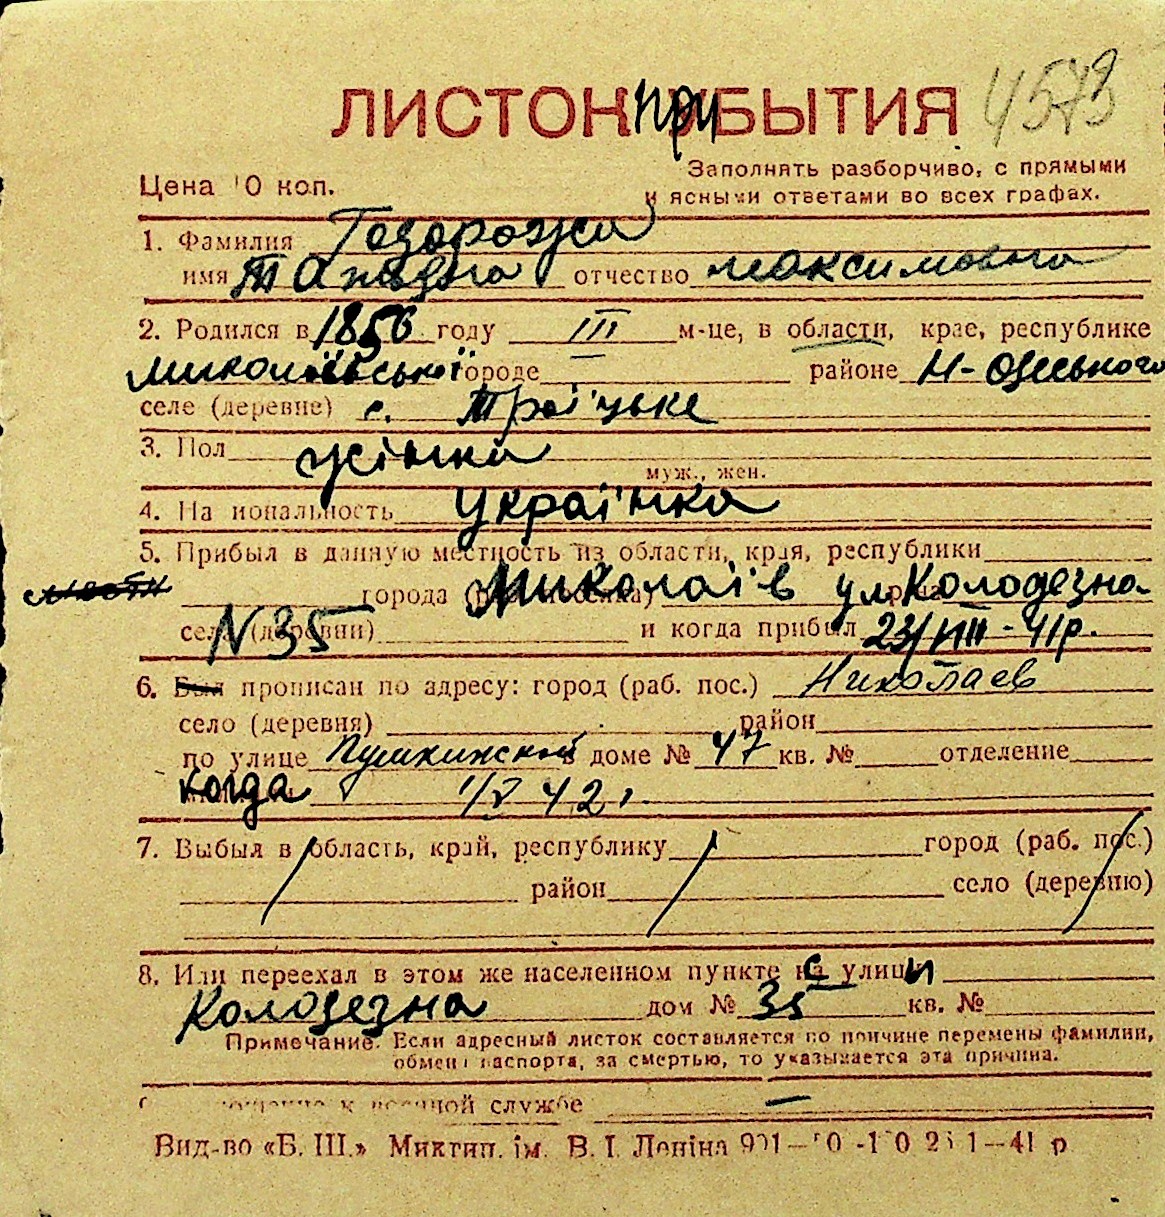 ЛИСТОК ПРИБЫТИЯ 4573
Цена 10 коп.
Заполнять разборчиво, с прямыми
и ясными ответами во всех графах.
1. Фамилия Тодорожа
имя отчество Максимовна
2. Родился в 1856 году III м-це, в области, крае, республике
Миколаївської городе — районе Н-Одеського
селе (деревне) с. Троїцьке
3. Пол жінка
муж., жен.
4. Национальность українка
5. Прибыл в данную местность из области, края, республики
города Миколаїв ул. Колодезна
села (деревни) N 35 и когда прибыл 23/VIII - 41р.
6. Был прописан по адресу: город (раб. пос.) Николаев
село (деревня) район
по улице Пушкинской в доме № 47 кв. № отделение
когда 1/V 42 г.
7. Выбыл в область, край, республику город (раб. пос.)
район село (деревню)
8. Или переехал в этом же населенном пункте с улици
Колодезна дом № 35 кв. №
Примечание. Если адресный листок составляется по причине перемены фамилии,
обмена паспорта, за смертью, то указывается эта причина.
к военной службе —
Вид-во «Б. Ш.» Миктип. ім. В. І. Леніна